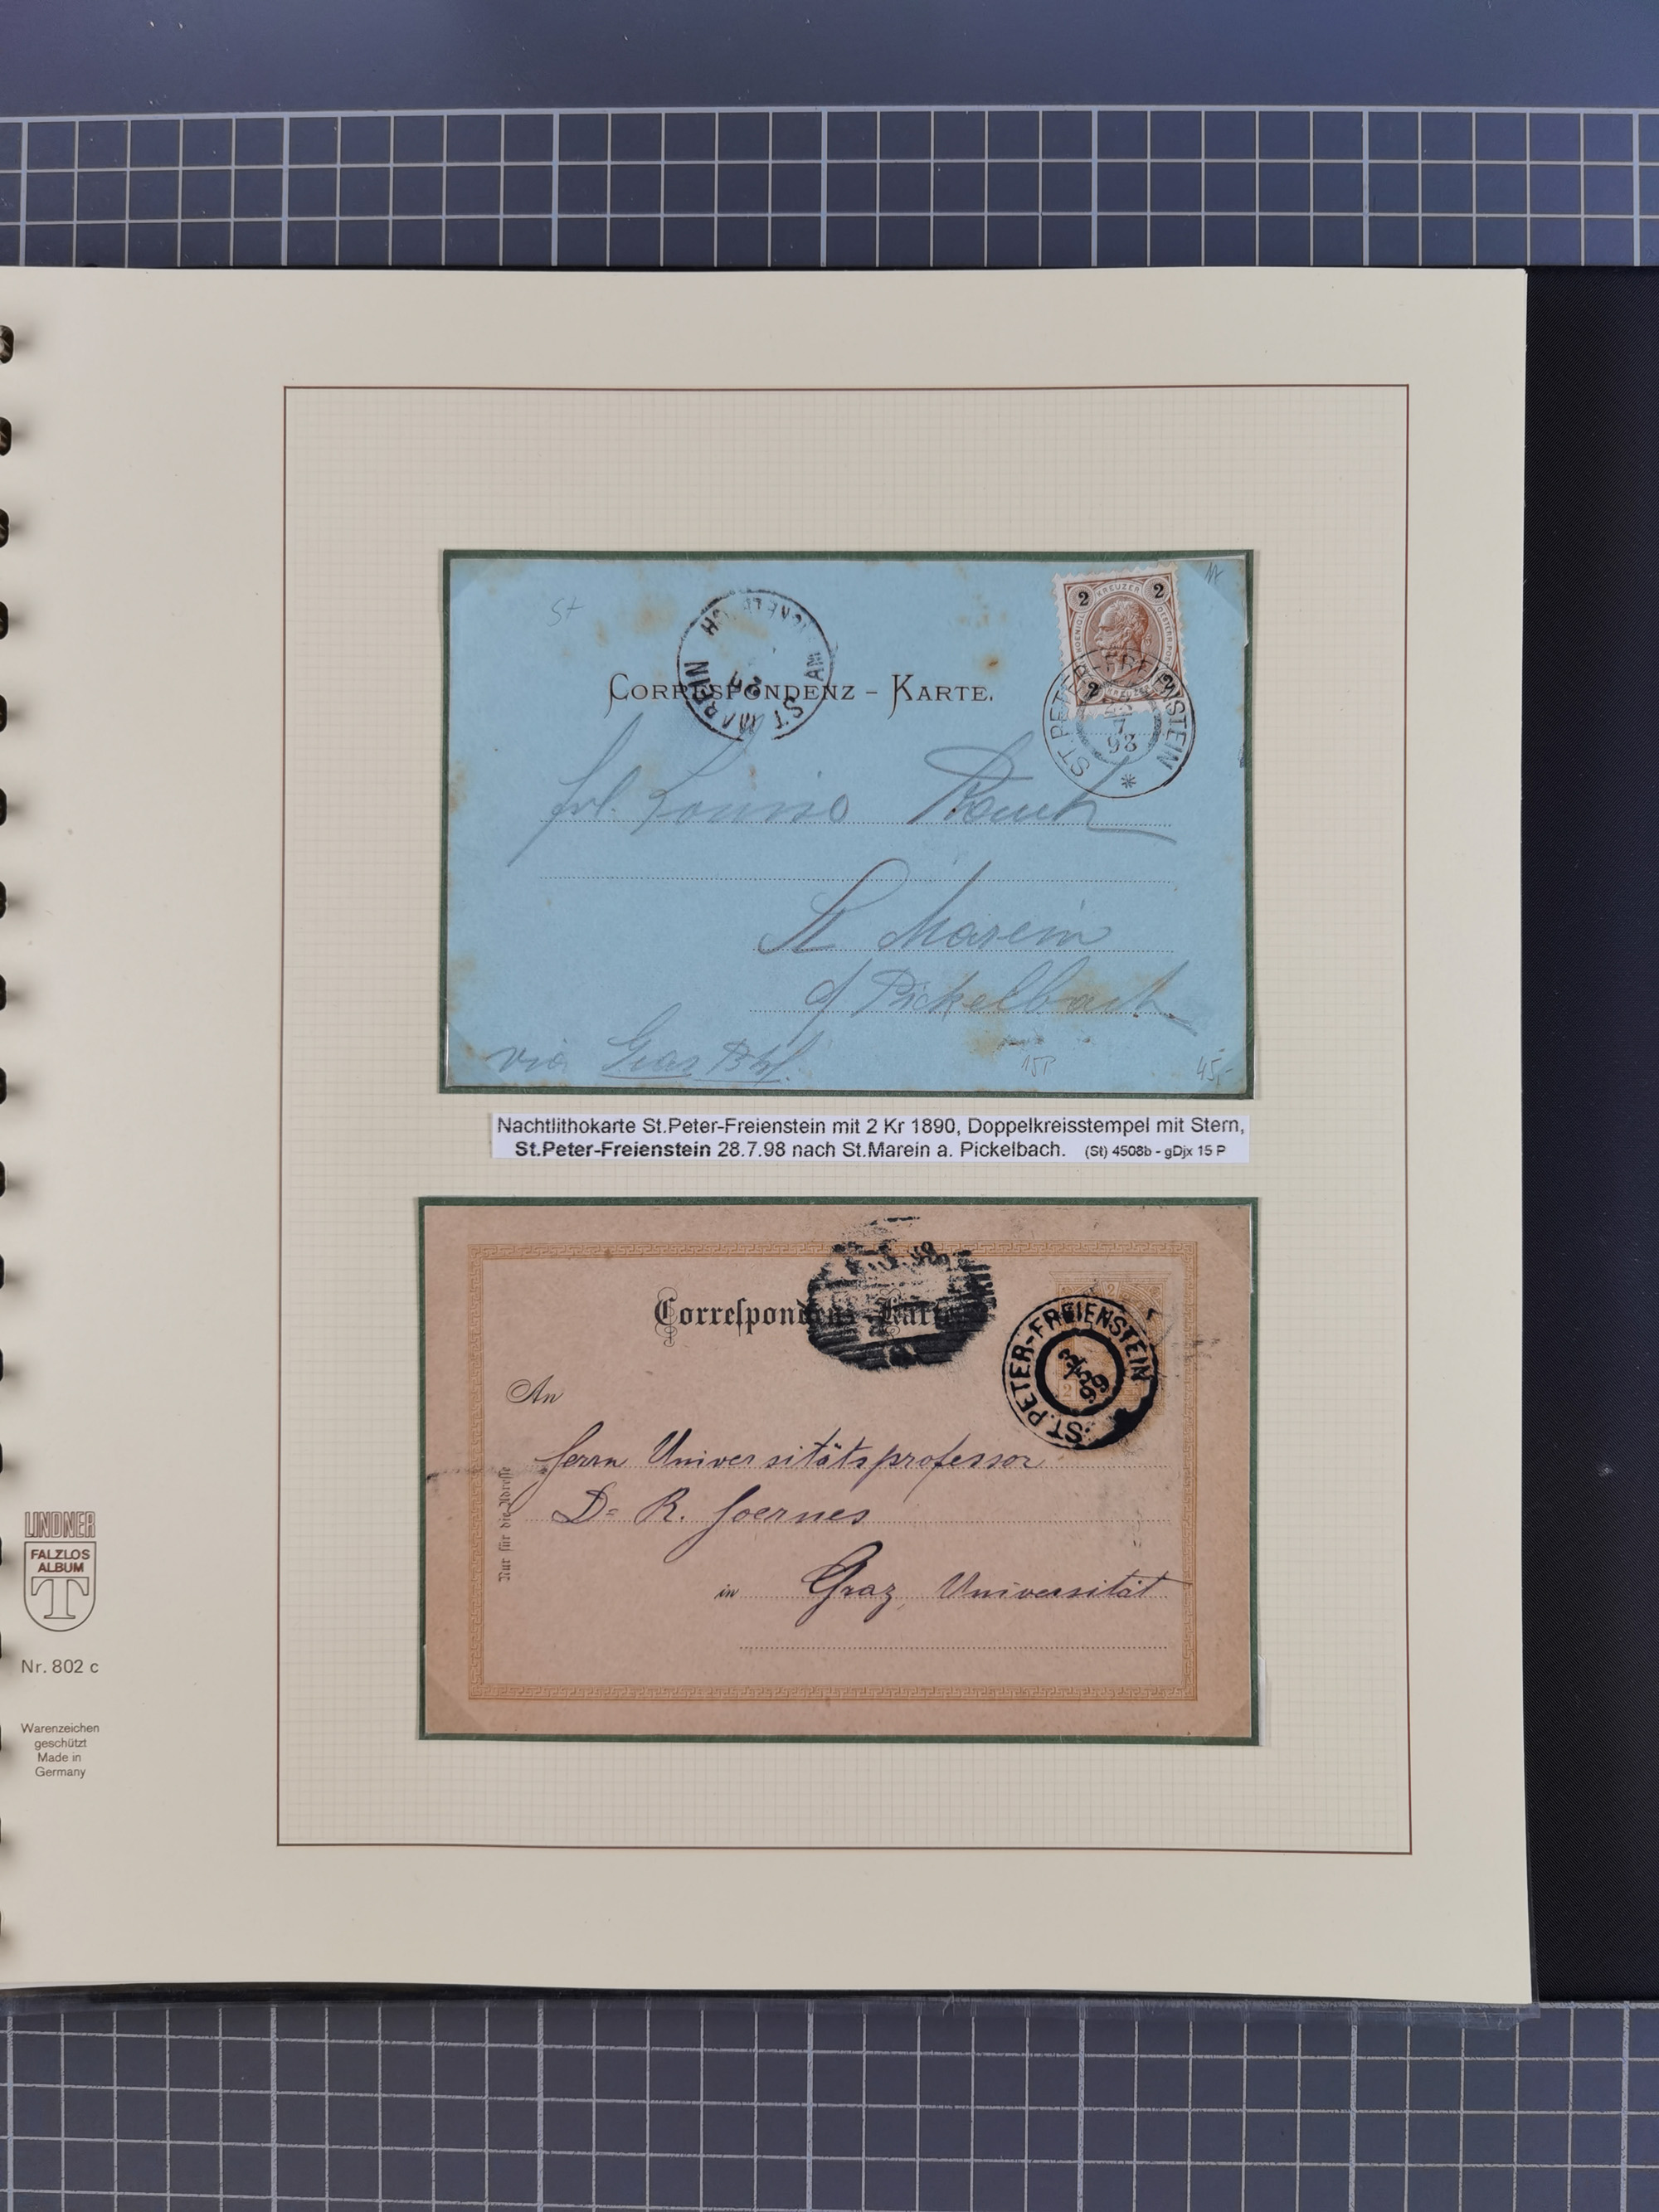 St
CORRESPONDENZ - KARTE.
2 KREUZER 2
2 KREUZER 2
ST. MAREIN AM
ST. PETER-FREIENSTEIN
7
98
Frl. Louise Rauch
St Marein
a/ Pickelbach
via Graz Bhf.
15P
45,-
Nachtlithokarte St.Peter-Freienstein mit 2 Kr 1890, Doppelkreisstempel mit Stern,
St.Peter-Freienstein 28.7.98 nach St.Marein a. Pickelbach. (St) 4508b - gDjx 15 P
Correspondenz-Karte
ST. PETER-FREIENSTEIN
An
Herrn Universitätsprofessor
Dr R. Hoernes
in Graz, Universität
Nur für die Adresse
LINDNER
FALZLOS
ALBUM
T
Nr. 802 c
Warenzeichen
geschützt
Made in
Germany